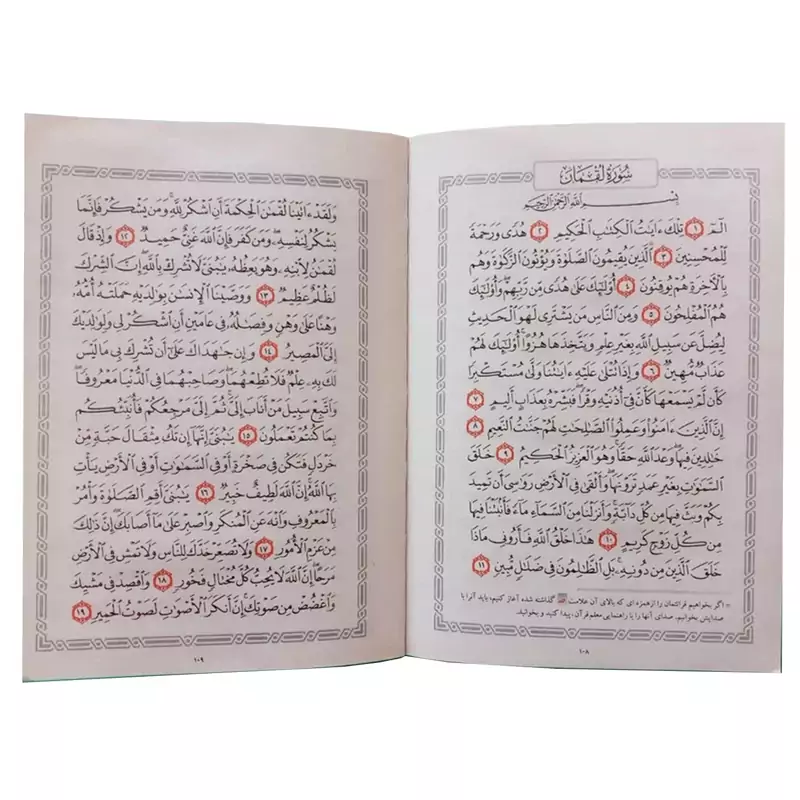 سُورَةُ لُقْمَان
بِسْمِ اللَّهِ الرَّحْمَٰنِ الرَّحِيمِ
الٓمٓ ۝١ تِلْكَ ءَايَٰتُ الْكِتَٰبِ الْحَكِيمِ ۝٢ هُدًى وَرَحْمَةً
لِلْمُحْسِنِينَ ۝٣ الَّذِينَ يُقِيمُونَ الصَّلَوٰةَ وَيُؤْتُونَ الزَّكَوٰةَ وَهُمْ
بِالْءَاخِرَةِ هُمْ يُوقِنُونَ ۝٤ أُولَٰٓئِكَ عَلَىٰ هُدًى مِنْ رَبِّهِمْ وَأُولَٰٓئِكَ
هُمُ الْمُفْلِحُونَ ۝٥ وَمِنَ النَّاسِ مَنْ يَشْتَرِى لَهْوَ الْحَدِيثِ
لِيُضِلَّ عَنْ سَبِيلِ اللَّهِ بِغَيْرِ عِلْمٍ وَيَتَّخِذَهَا هُزُوًا أُولَٰٓئِكَ لَهُمْ
عَذَابٌ مُهِينٌ ۝٦ وَإِذَا تُتْلَىٰ عَلَيْهِ ءَايَٰتُنَا وَلَّىٰ مُسْتَكْبِرًا
كَأَنْ لَمْ يَسْمَعْهَا كَأَنَّ فِىٓ أُذُنَيْهِ وَقْرًا فَبَشِّرْهُ بِعَذَابٍ أَلِيمٍ ۝٧
إِنَّ الَّذِينَ ءَامَنُوا وَعَمِلُوا الصَّٰلِحَٰتِ لَهُمْ جَنَّٰتُ النَّعِيمِ ۝٨
خَٰلِدِينَ فِيهَا وَعْدَ اللَّهِ حَقًّا وَهُوَ الْعَزِيزُ الْحَكِيمُ ۝٩ خَلَقَ
السَّمَٰوَٰتِ بِغَيْرِ عَمَدٍ تَرَوْنَهَا وَأَلْقَىٰ فِى الْأَرْضِ رَوَٰسِىَ أَنْ تَمِيدَ
بِكُمْ وَبَثَّ فِيهَا مِنْ كُلِّ دَآبَّةٍ وَأَنْزَلْنَا مِنَ السَّمَآءِ مَآءً فَأَنْبَتْنَا فِيهَا
مِنْ كُلِّ زَوْجٍ كَرِيمٍ ۝١٠ هَٰذَا خَلْقُ اللَّهِ فَأَرُونِى مَاذَا
خَلَقَ الَّذِينَ مِنْ دُونِهِ بَلِ الظَّٰلِمُونَ فِى ضَلَٰلٍ مُبِينٍ ۝١١
* اگر بخواهیم قرائتمان را از همزه ای که بالای آن علامت گذاشته شده آغاز کنیم، باید آنرا با
صدایش بخوانیم. صدای آنها را با راهنمایی معلم قرآن، پیدا کنید و بخوانید.
١٠٨
وَلَقَدْ ءَاتَيْنَا لُقْمَٰنَ الْحِكْمَةَ أَنِ اشْكُرْ لِلَّهِ وَمَنْ يَشْكُرْ فَإِنَّمَا
يَشْكُرُ لِنَفْسِهِ وَمَنْ كَفَرَ فَإِنَّ اللَّهَ غَنِىٌّ حَمِيدٌ ۝١٢ وَإِذْ قَالَ
لُقْمَٰنُ لِابْنِهِ وَهُوَ يَعِظُهُ يَٰبُنَىَّ لَا تُشْرِكْ بِاللَّهِ إِنَّ الشِّرْكَ
لَظُلْمٌ عَظِيمٌ ۝١٣ وَوَصَّيْنَا الْإِنْسَٰنَ بِوَٰلِدَيْهِ حَمَلَتْهُ أُمُّهُ
وَهْنًا عَلَىٰ وَهْنٍ وَفِصَٰلُهُ فِى عَامَيْنِ أَنِ اشْكُرْ لِى وَلِوَٰلِدَيْكَ
إِلَىَّ الْمَصِيرُ ۝١٤ وَإِنْ جَٰهَدَاكَ عَلَىٰٓ أَنْ تُشْرِكَ بِى مَا لَيْسَ
لَكَ بِهِ عِلْمٌ فَلَا تُطِعْهُمَا وَصَاحِبْهُمَا فِى الدُّنْيَا مَعْرُوفًا
وَاتَّبِعْ سَبِيلَ مَنْ أَنَابَ إِلَىَّ ثُمَّ إِلَىَّ مَرْجِعُكُمْ فَأُنَبِّئُكُمْ
بِمَا كُنْتُمْ تَعْمَلُونَ ۝١٥ يَٰبُنَىَّ إِنَّهَآ إِنْ تَكُ مِثْقَالَ حَبَّةٍ مِنْ
خَرْدَلٍ فَتَكُنْ فِى صَخْرَةٍ أَوْ فِى السَّمَٰوَٰتِ أَوْ فِى الْأَرْضِ يَأْتِ
بِهَا اللَّهُ إِنَّ اللَّهَ لَطِيفٌ خَبِيرٌ ۝١٦ يَٰبُنَىَّ أَقِمِ الصَّلَوٰةَ وَأْمُرْ
بِالْمَعْرُوفِ وَانْهَ عَنِ الْمُنْكَرِ وَاصْبِرْ عَلَىٰ مَآ أَصَابَكَ إِنَّ ذَٰلِكَ
مِنْ عَزْمِ الْأُمُورِ ۝١٧ وَلَا تُصَعِّرْ خَدَّكَ لِلنَّاسِ وَلَا تَمْشِ فِى الْأَرْضِ
مَرَحًا إِنَّ اللَّهَ لَا يُحِبُّ كُلَّ مُخْتَالٍ فَخُورٍ ۝١٨ وَاقْصِدْ فِى مَشْيِكَ
وَاغْضُضْ مِنْ صَوْتِكَ إِنَّ أَنْكَرَ الْأَصْوَٰتِ لَصَوْتُ الْحَمِيرِ ۝١٩
١٠٩